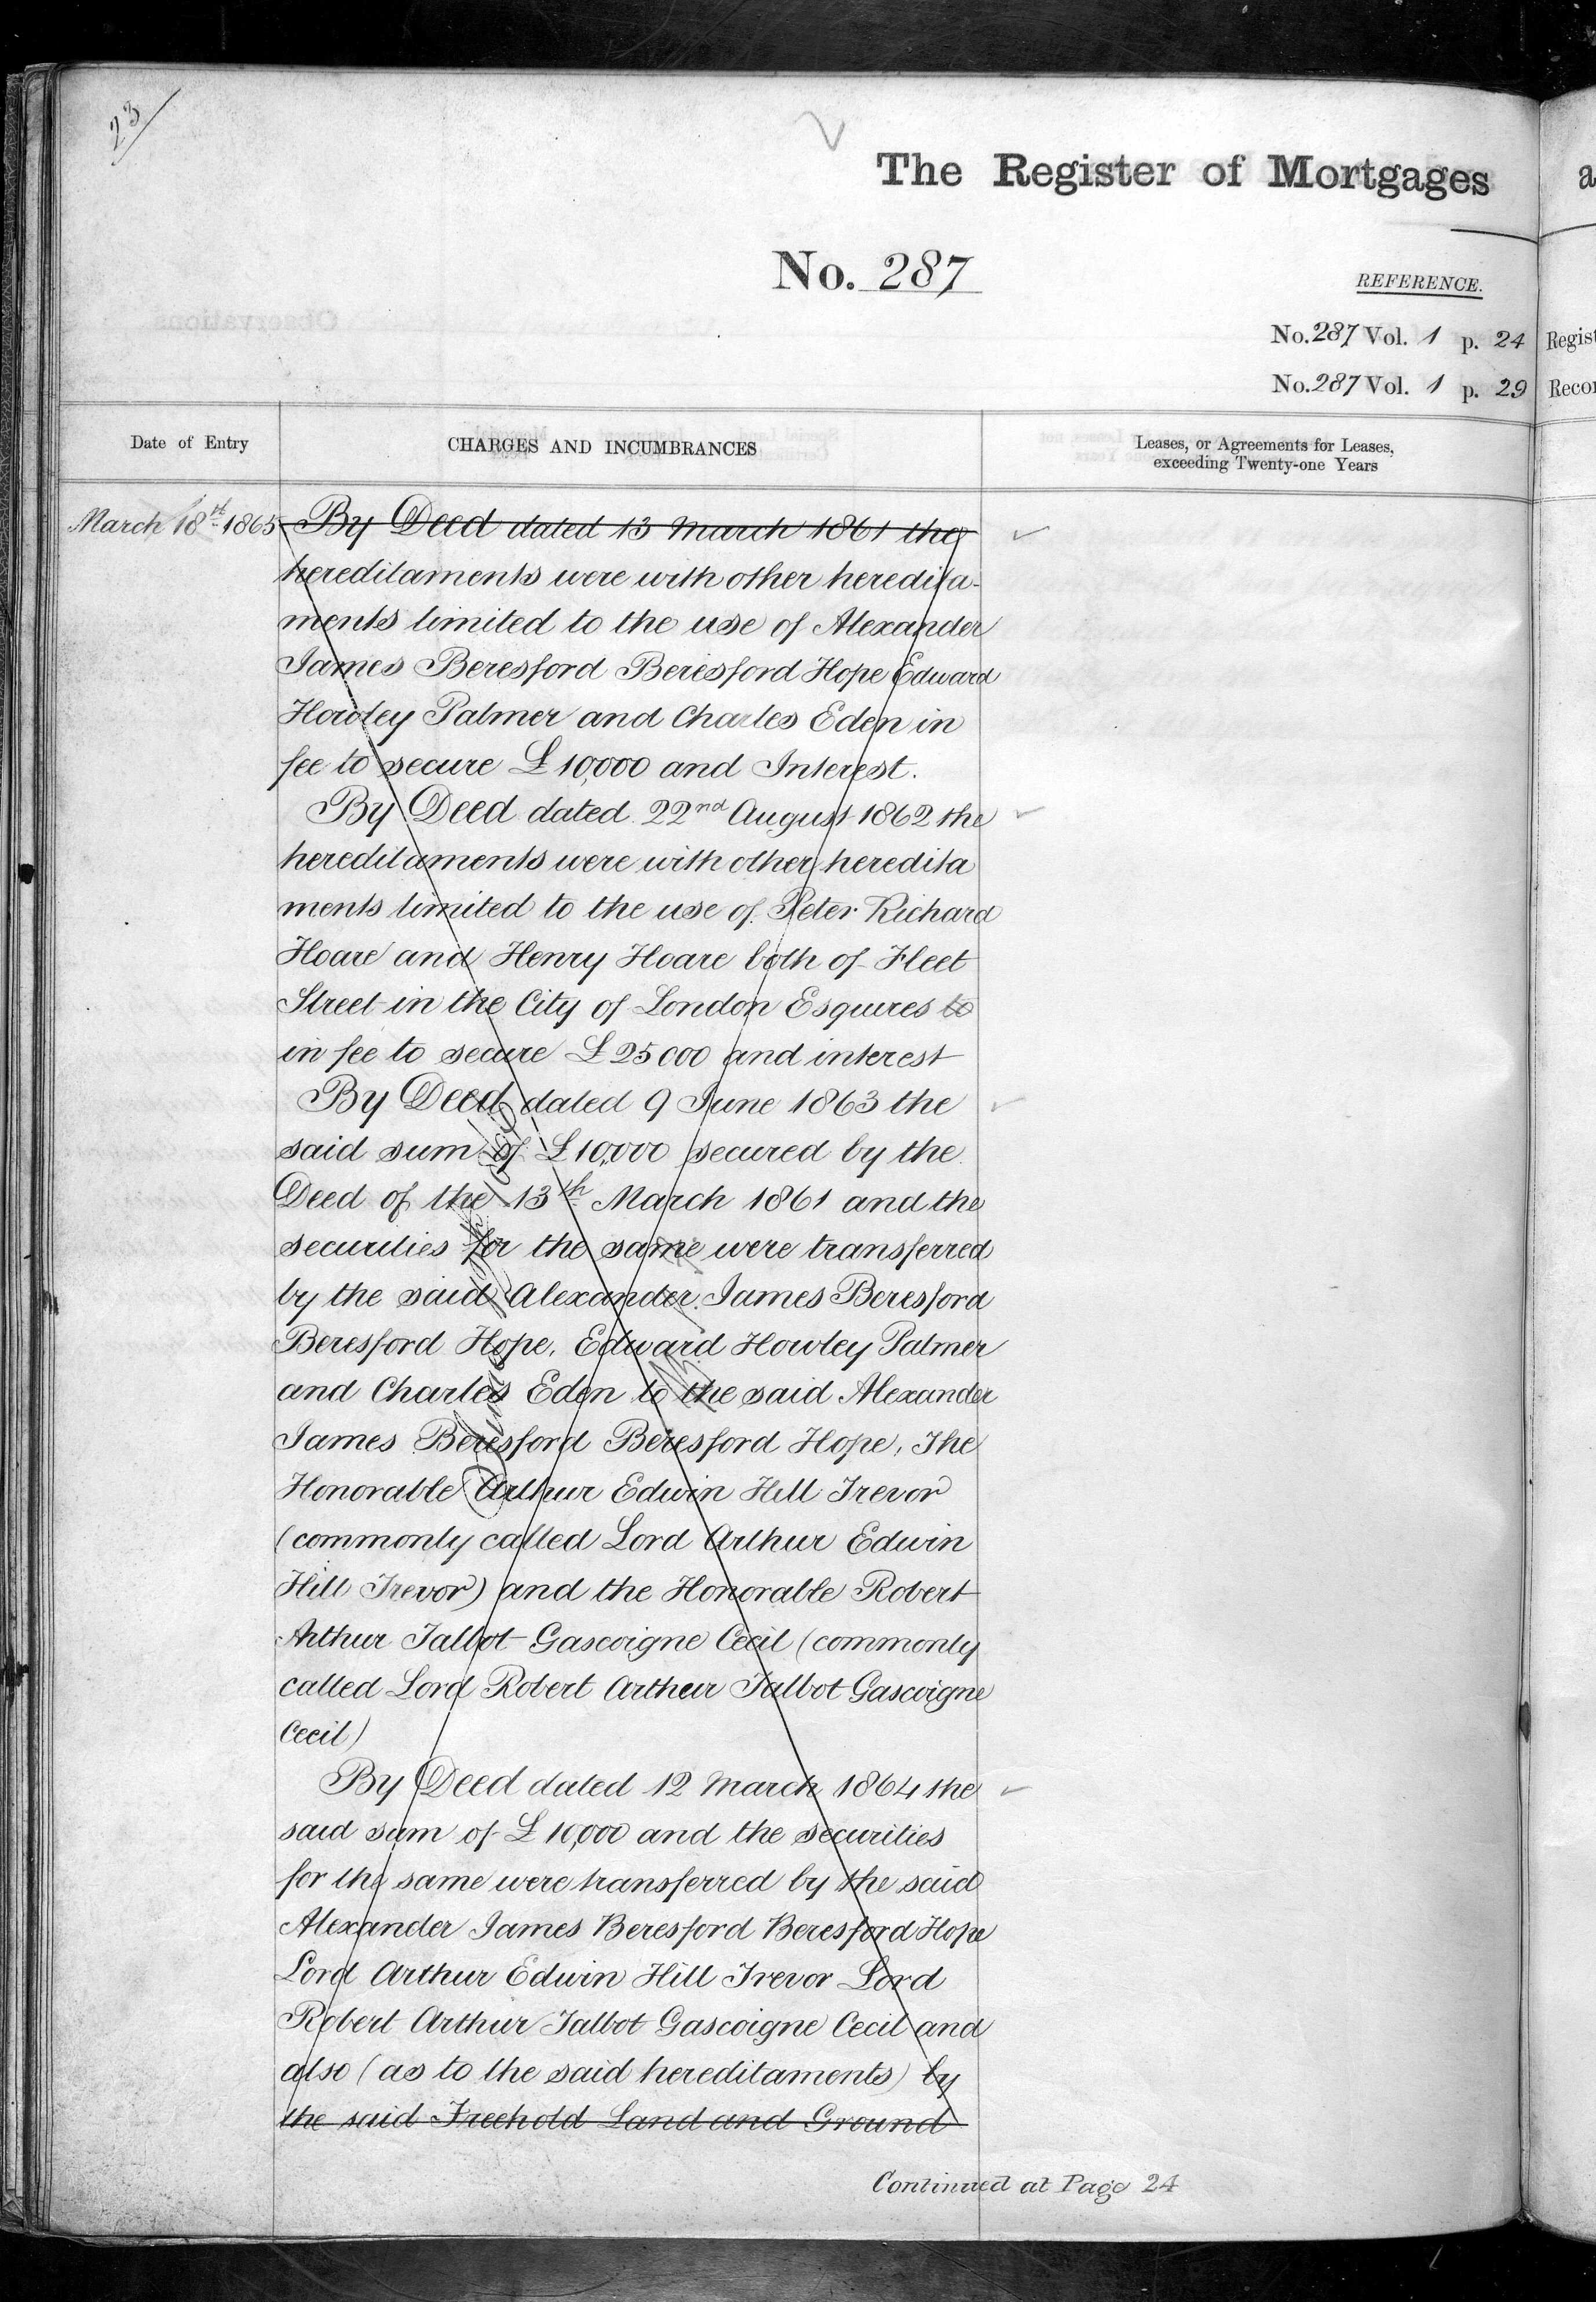 23
The Register of Mortgages
No. 287
REFERENCE.
No. 287 Vol. 1 p. 24
No. 287 Vol. 1 p. 29
Date of Entry
CHARGES AND INCUMBRANCES
Leases, or Agreements for Leases,
exceeding Twenty-one Years
March 18th 1865
By Deed dated 13 March 1861 the
hereditaments were with other heredita-
ments limited to the use of Alexander
James Beresford Beresford Hope Edward
Howley Palmer and Charles Eden in
fee to secure £10,000 and Interest.
By Deed dated 22nd August 1862 the
hereditaments were with other heredita
ments limited to the use of Peter Richard
Hoare and Henry Hoare both of Fleet
Street in the City of London Esquires to
in fee to secure £25000 and interest
By Deed dated 9 June 1863 the
said sum of £10,000 secured by the
Deed of the 13th March 1861 and the
securities for the same were transferred
by the said Alexander James Beresford
Beresford Hope, Edward Howley Palmer
and Charles Eden to the said Alexander
James Beresford Beresford Hope, The
Honorable Arthur Edwin Hill Trevor
(commonly called Lord Arthur Edwin
Hill Trevor) and the Honorable Robert
Arthur Talbot Gascoigne Cecil (commonly
called Lord Robert Arthur Talbot Gascoigne
Cecil)
By Deed dated 12 March 1864 the
said sum of £10,000 and the securities
for the same were transferred by the said
Alexander James Beresford Beresford Hope
Lord Arthur Edwin Hill Trevor Lord
Robert Arthur Talbot Gascoigne Cecil and
also (as to the said hereditaments) by
the said Freehold Land and Ground
Continued at Page 24
a
Regist
Recor